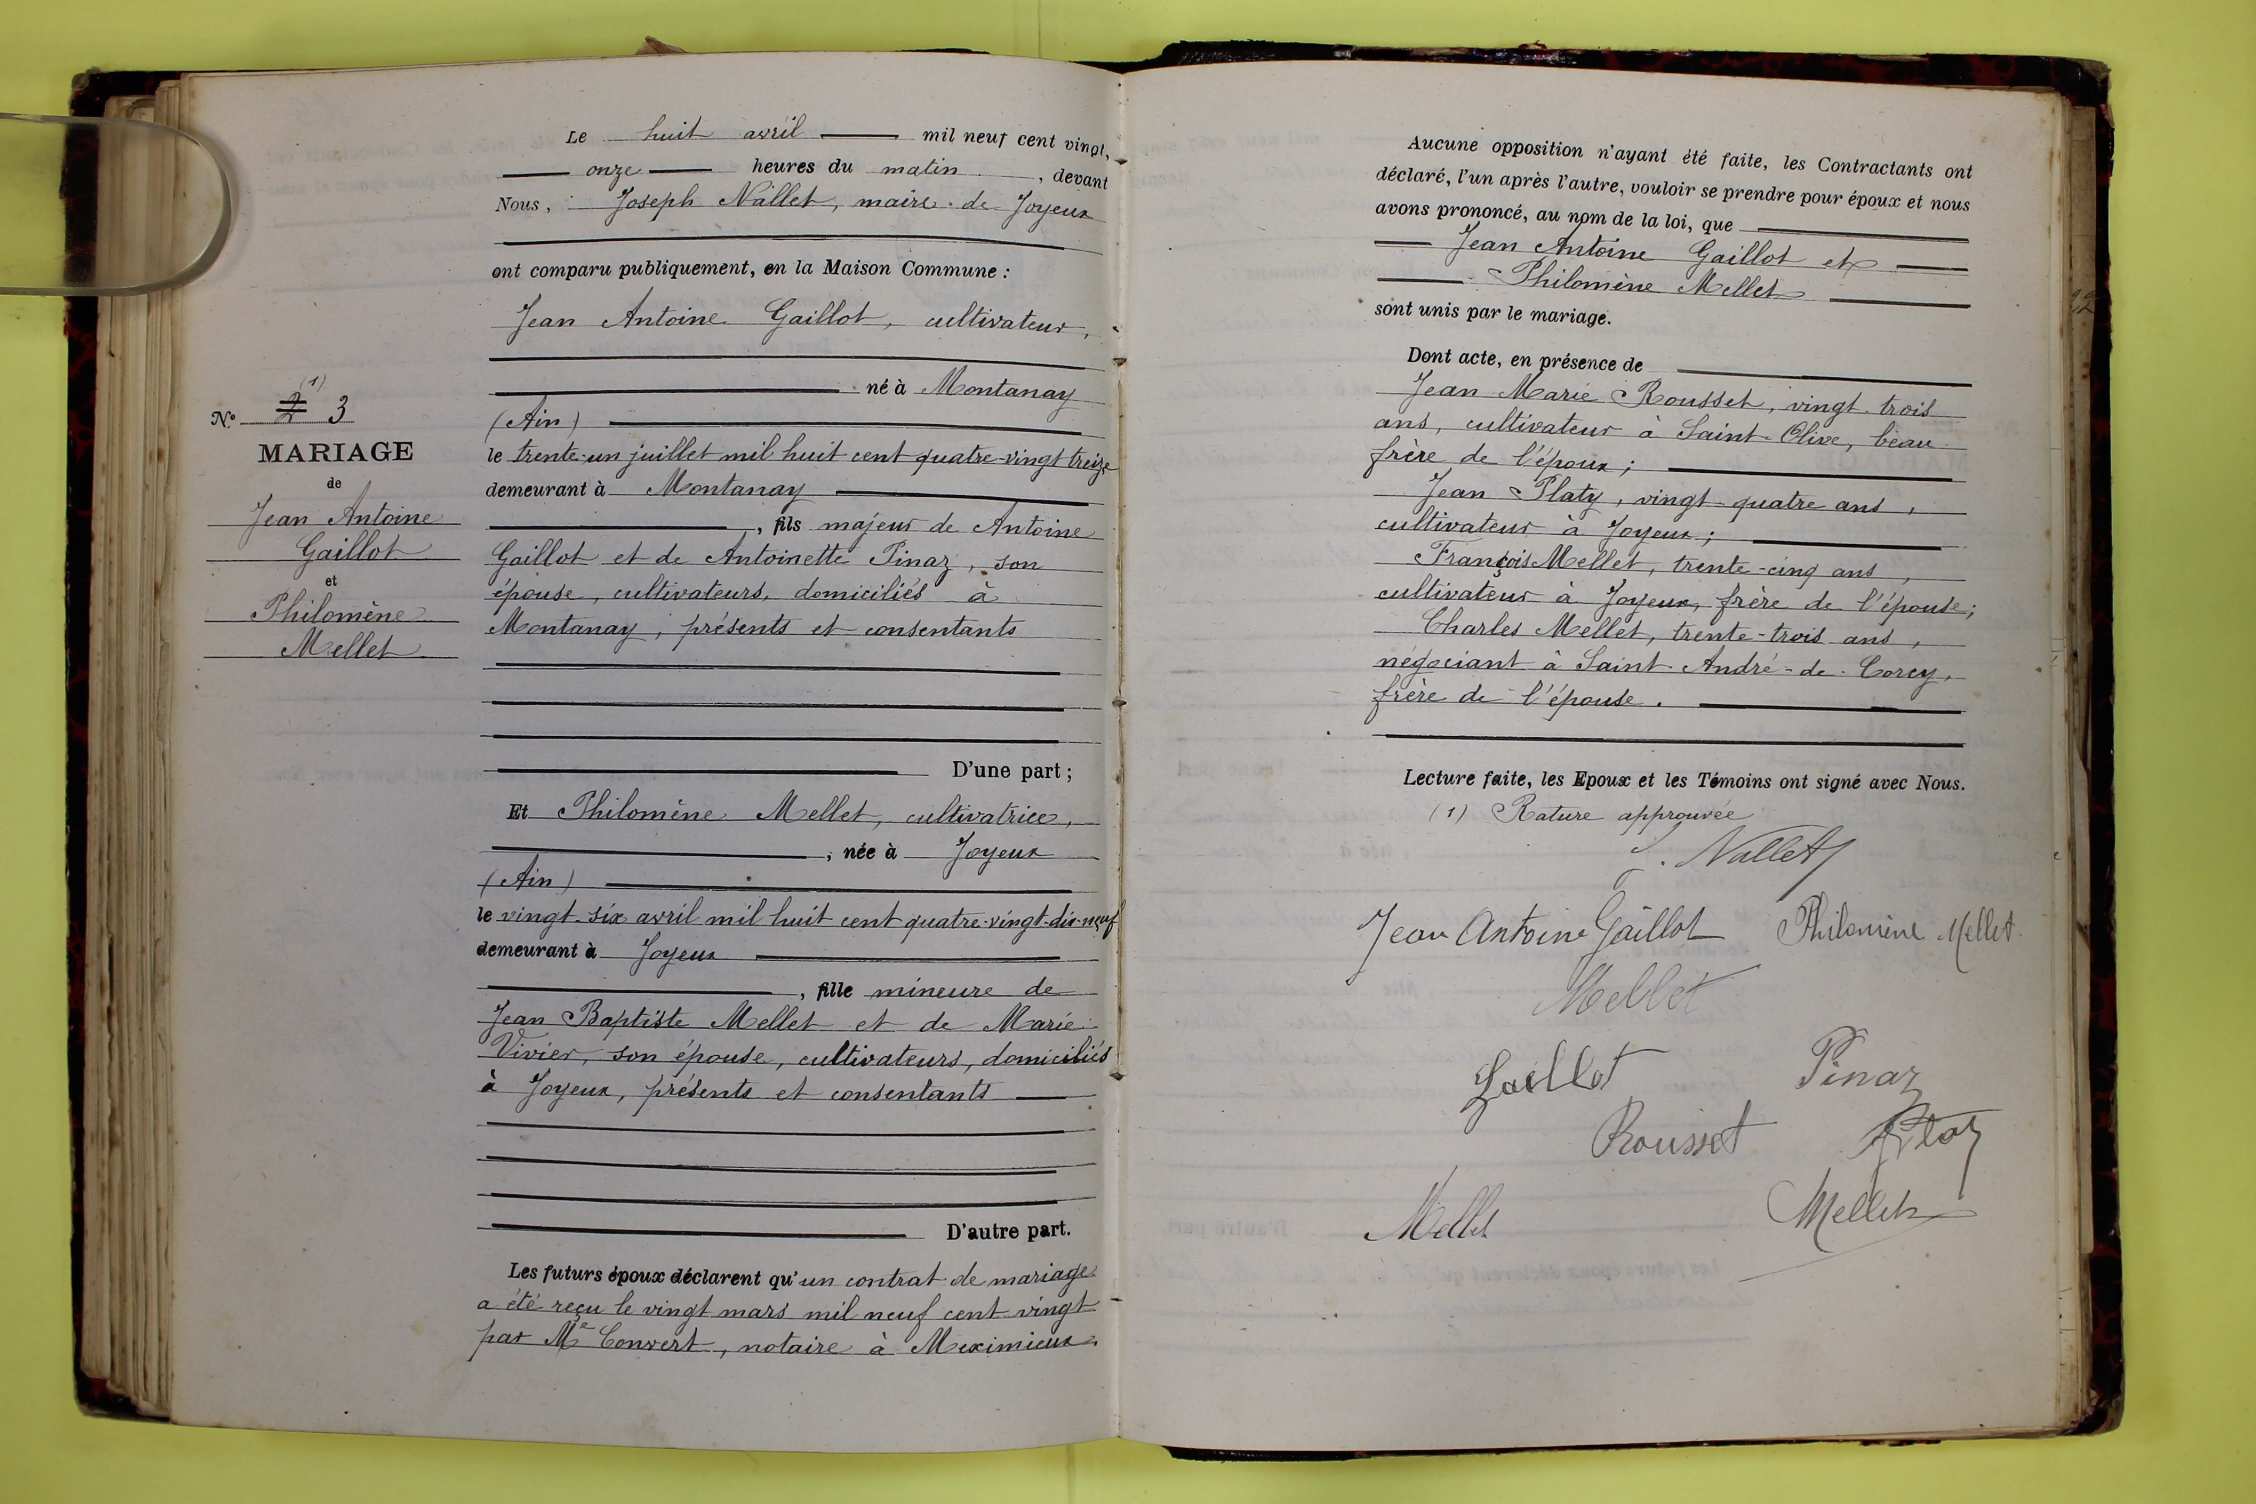 (1)
N.º 2 3
MARIAGE
de
Jean Antoine
Gaillot
et
Philomène
Mellet
Le huit avril mil neuf cent vingt,
onze heures du matin, devant
Nous, Joseph Nallet, maire de Joyeux
ont comparu publiquement, en la Maison Commune :
Jean Antoine Gaillot, cultivateur,
né à Montanay
(Ain)
le trente-un juillet mil huit cent quatre-vingt treize
demeurant à Montanay
, fils majeur de Antoine
Gaillot et de Antoinette Pinaz, son
épouse, cultivateurs, domiciliés à
Montanay, présents et consentants
D'une part ;
Et Philomène Mellet, cultivatrice,
, née à Joyeux
(Ain)
le vingt-six avril mil huit cent quatre-vingt-dix-neuf
demeurant à Joyeux
, fille mineure de
Jean Baptiste Mellet et de Marie
Vivier, son épouse, cultivateurs, domiciliés
à Joyeux, présents et consentants
D'autre part.
Les futurs époux déclarent qu'un contrat de mariage
a été reçu le vingt mars mil neuf cent vingt
par Me Convert, notaire à Meximieux.
Aucune opposition n'ayant été faite, les Contractants ont
déclaré, l'un après l'autre, vouloir se prendre pour époux et nous
avons prononcé, au nom de la loi, que
Jean Antoine Gaillot et
Philomène Mellet
sont unis par le mariage.
Dont acte, en présence de
Jean Marie Rousset, vingt-trois
ans, cultivateur à Saint-Olive, beau
frère de l'époux ;
Jean Platy, vingt-quatre ans,
cultivateur à Joyeux ;
François Mellet, trente-cinq ans,
cultivateur à Joyeux, frère de l'épouse ;
Charles Mellet, trente-trois ans,
négociant à Saint-André-de-Corcy,
frère de l'épouse.
Lecture faite, les Epoux et les Témoins ont signé avec Nous.
(1) Rature approuvée
J. Nallet
Jean Antoine Gaillot Philomène Mellet
Mellet
Gaillot Pinaz
Rousset
Mellet Mellet